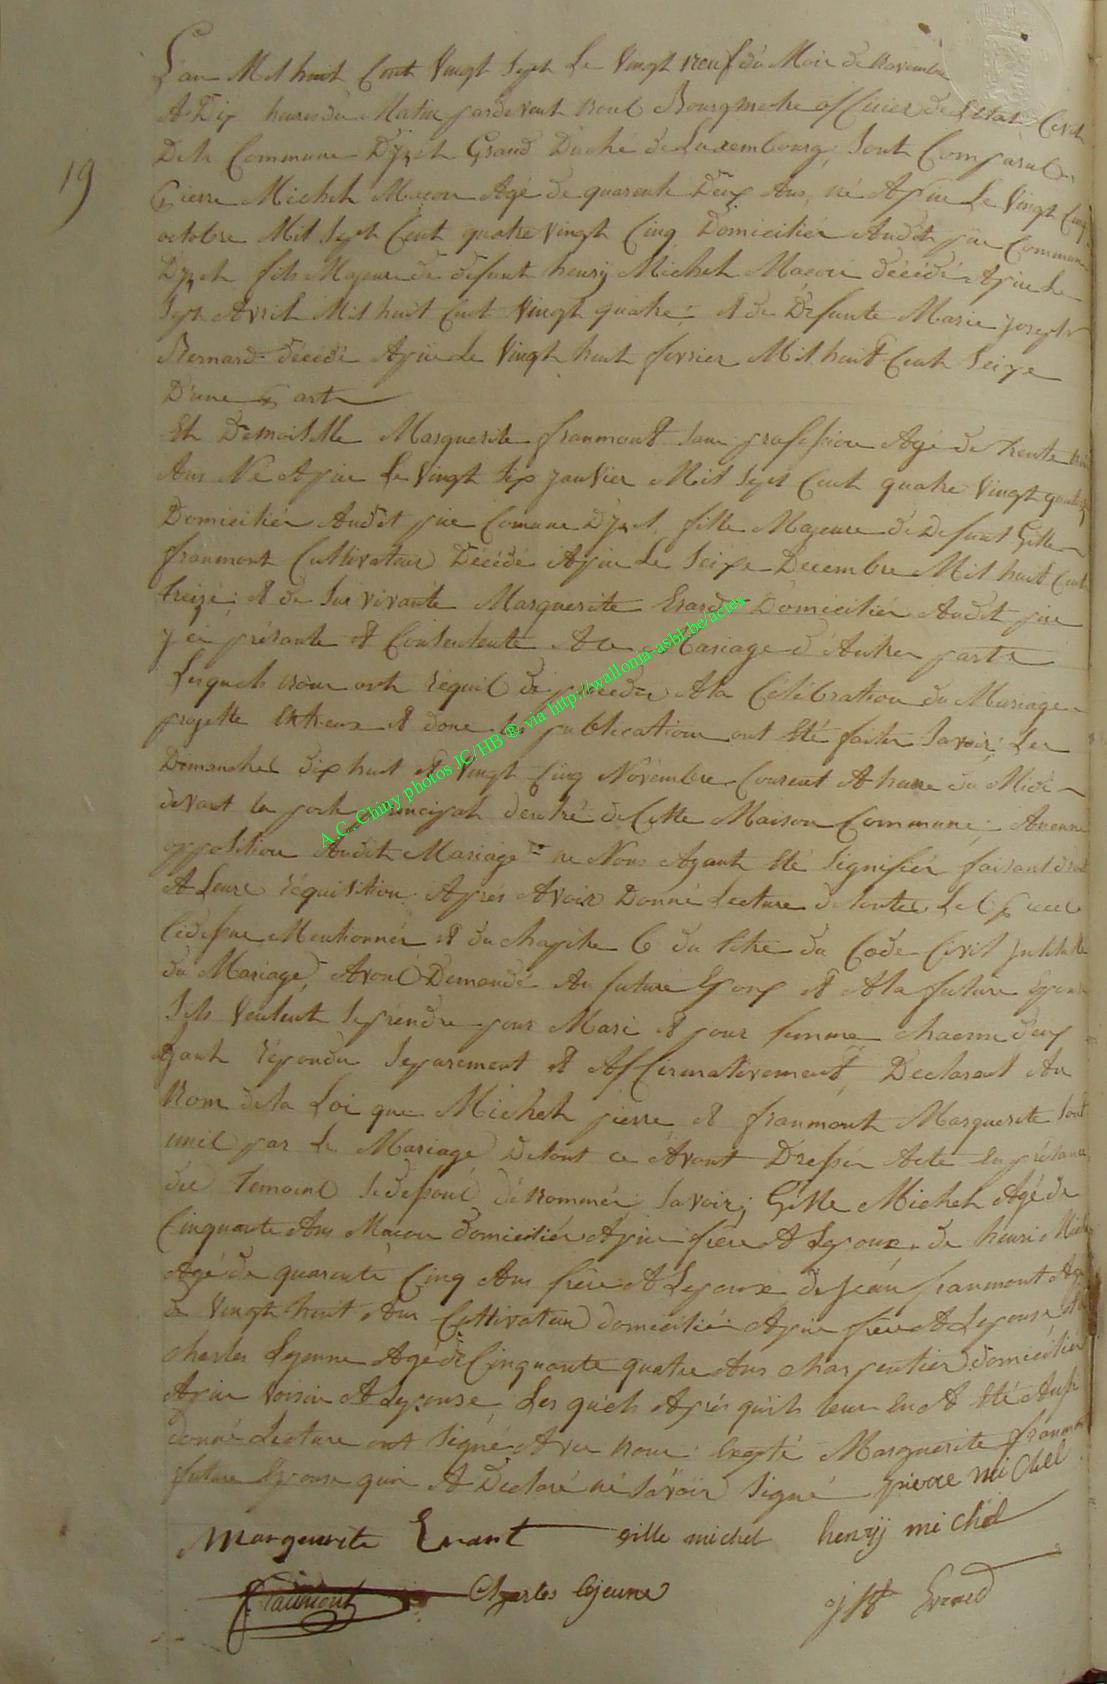 19
L'an Mil huit Cent Vingt Sept Le Vingt neuf du Mois de Novembre
A Dix heures du Matin pardevant nous Bourgmestre officier de L'Etat Civil
De la Commune D'Yzel Grand Duché de Luxembourg, Sont Comparus
Pierre Michel Maçon Agé de quarante Deux Ans, né A pin Le Vingt Cinq
octobre Mil Sept Cent quatre vingt Cinq Domicilié Audit pin Commune
D'yzel fils Majeure de defunt henry Michel Macon décédé A pin Le
Sept Avril Mil huit Cent Vingt quatre; et de Défunte Marie joseph
Bernard décédé A pin Le Vingt huit fevrier Mil huit Cent Seize
D'une Part
Et Demoiselle Marguerite franmont Sans profession Agé de trente trois
Ans Né A pin Le Vingt Six janvier Mil Sept Cent quatre Vingt
Domicilié Audit pin Comune D'yzel, fille Majeure de Defunt Gille
franmont Cultivateur Décédé A pin Le Seize Decembre Mil huit Cent
treize; et de Survivante Marguerite Erard Domicilié Audit pin
y ci présante et Consentente A ce Mariage d'Autre part
Lesquels nous ont réquis de procéder A la Célébration du Mariage
projetté Entreux et dont les publications ont Eté faites Savoir; Les
Dimanches dix huit et Vingt Cinq Novembre Courent A heure du Midi
devant la porte principal d'entré de Cette Maison Commune; Aucune
opposition Audit Mariage ne Nous Ayant Eté Signifiér faisant droit
A Leure réquisition Aprés Avoir Donné Lecture de toutes Les pieces
Cidessue Mentionnér et du chapitre 6 du titre du Code Civil intitulé
du Mariage, Avons Demandé Au future Epoux et A la future Epouse
S'ils Veulent Seprendre pour Mari et pour femme, chacun d'eux
Ayant répondu Séparement et Affirmativement, Déclarons Au
Nom de la Loi que Michel pierre et franmont Marguerite Sont
unis par Le Mariage De tout ce Avons Dressér Acte En présence
des temoins Sidessous dénommér Savoir; Gille Michel Agé de
Cinquante Ans Macon domicilié A pin frére A Lepoux, de henri Michel
Agé de quarante Cinq Ans frére A Lepoux de jean franmont Agé
de Vingt huit Ans Cultivateur domicilié A pin frére A Lepouse, et de
Charles Lejeune Agé de Cinquante quatre Ans charpentier domicilié
A pin Voisin A Lepouse, Les quels Aprés qu'ils leur En A Eté Aussi
donné Lecture ont Signé Avec nous Excepté Marguerite franmont
future Epouse qui A Déclaré né Savoir Signé pierre michel
Marguerite Erart gille michel henrÿ michel
franmont Charles lejeune Evrard
A.C. Chiny photos JC/HB ® via http://wallonia-asbl.be/actes